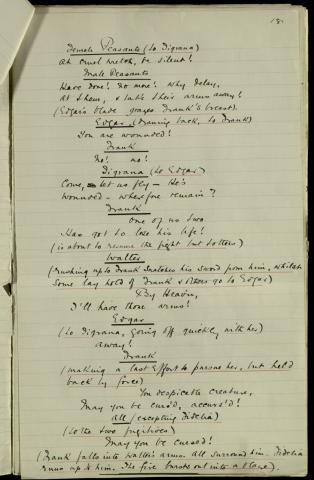 18.
Female Peasants (to Tigrana)
Ah cruel wretch, be silent!
Male Peasants
Have done! no more! Why delay,
At them, & take their arms away!
(Edgar's blade grazes Frank's breast).
Edgar (Drawing back, to Frank)
You are wounded!
Frank
No! no!
Tigrana (to Edgar)
Come, let us fly — He's
wounded — wherefore remain?
Frank
One of us two
Has got to lose his life!
(is about to resume the fight but totters)
Walter
(Rushing up to Frank snatches his sword from him, whilst
some lay hold of Frank & others go to Edgar)
By Heaven,
I'll have those arms!
Edgar
(to Tigrana, going off quickly with her)
Away!
Frank
(making a last effort to pursue her, but held
back by force)
You despicable creature,
May you be curs'd, accurs'd!
All (excepting Fidelia)
(to the two fugitives)
May you be cursed!
(Frank falls into Walter's arms. All surround him. Fidelia
runs up to him. The fire bursts out into a blaze).